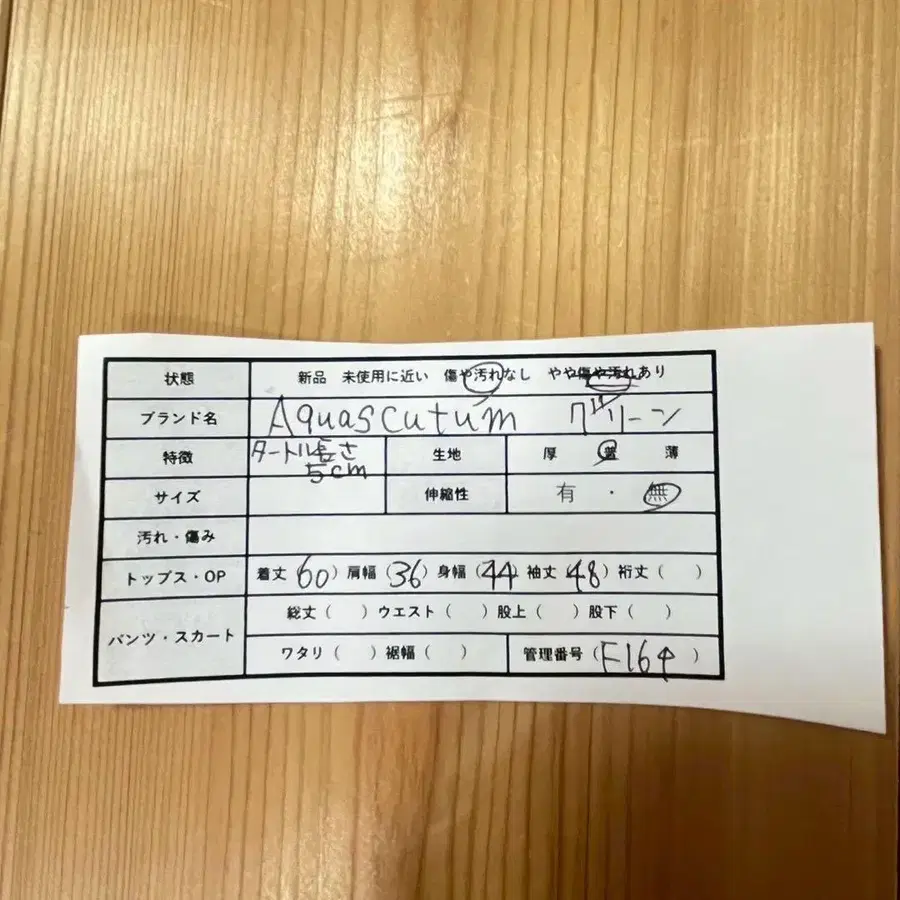 状態 新品 未使用に近い 傷や汚れなし やや傷や汚れあり
ブランド名 Aquascutum グリーン
特徴 タートル長さ 5cm 生地 厚 普 薄
サイズ 伸縮性 有 ・ 無
汚れ・傷み
トップス・OP 着丈(60) 肩幅(36) 身幅(44) 袖丈(48) 裄丈( )
パンツ・スカート 総丈( ) ウエスト( ) 股上( ) 股下( )
ワタリ( ) 裾幅( ) 管理番号(F16↑)